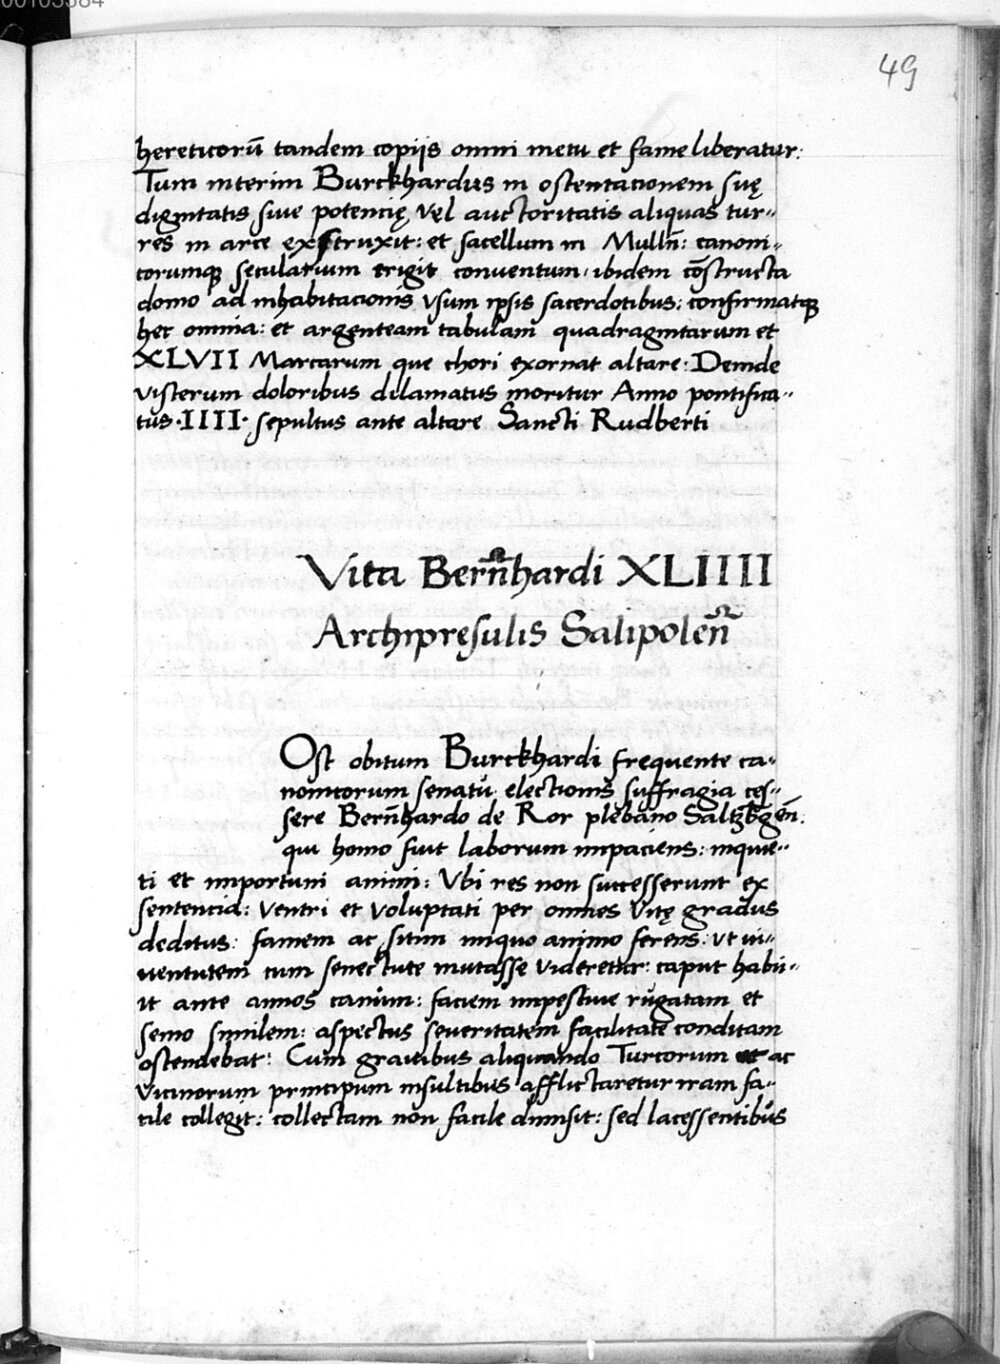 00103384
49
hereticorū tandem copijs omni metu et fame liberatur:
Tum interim Burckhardus in ostentacionem suę
dignitatis siue potencię vel auctoritatis aliquas tur-
res in arce exstruxit: et sacellum in Mulln̄: canoni-
corumque secularium erigit conuentum, ibidem cōstructa
domo ad inhabitacionis vsum ipsis sacerdotibus: confirmatque
hec omnia: et argenteam tabulam quadragintarum et
XLVII Marcarum que chori exornat altare: Deinde
viscerum doloribus dilamatus moritur Anno pontifica-
tus ·IIII· sepultus ante altare Sancti Rudberti
Vita Bern̄hardi XLIIII
Archipręsulis Salipolen̄
Ost obitum Burckhardi frequente ca-
nonicorum senatu electionis suffragia ces-
sere Bern̄hardo de Ror plebano Saltzbgen̄:
qui homo fuit laborum impaciens: inquie-
ti et importuni animi: Vbi res non successerunt ex
sentencia: ventri et voluptati per omnes vitę gradus
deditus: famem ac sitim iniquo animo ferens: vt iu-
uentutem cum senectute mutasse videretur: caput habu-
it ante annos canum: faciem impestiue rugatam et
semo similem: aspectus seueritatem facilitate conditam
ostendebat: Cum grauibus aliquando Turcorum ac
vicinorum principum insultibus afflictaretur iram fa-
cile collegit: collectam non facile dimisit: sed lacessentibus